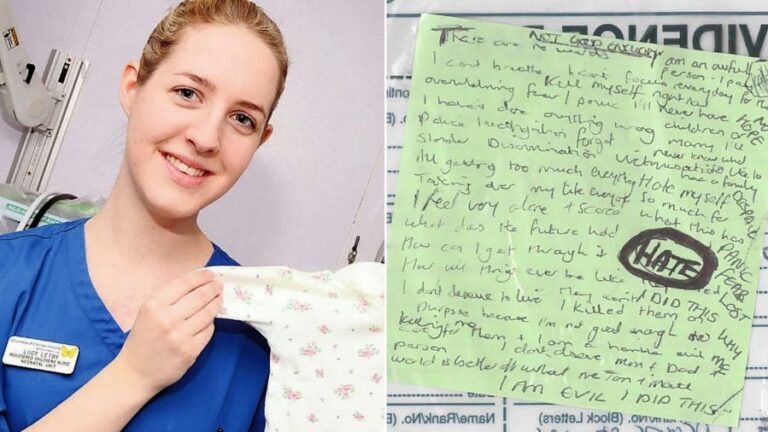 LUCY LETBY
REGISTERED CHILDRENS NURSE
NEONATAL UNIT
VIDENCE
NOT GOOD ENOUGH
There are no words I am an awful person I pay
I can't breathe I can't focus everyday for that
Kill myself right now
overwhelming fear / panic I'll never have
HOPE
I haven't done anything wrong children or marry I'll
Police investigation forget never know what
Slander Discrimination Victimisation like to
have a family
All getting too much everything Hate myself
DESPAIR
Taking over my life everyday so much for
I feel very alone + scared what this has
What does the future hold
PANIC
HATE
How can I get through it
FEAR
How will things ever be like they used
LOST
They won't I DID THIS
I don't deserve to live I killed them on
WHY
purpose because I'm not good enough to
ME
care for them + I am a horrible evil
person I don't deserve mum + Dad
world is better off without me Tom + Matt
I AM EVIL I DID THIS
Name/Rank/No.
(Block Letters)
Name/Rank/No.